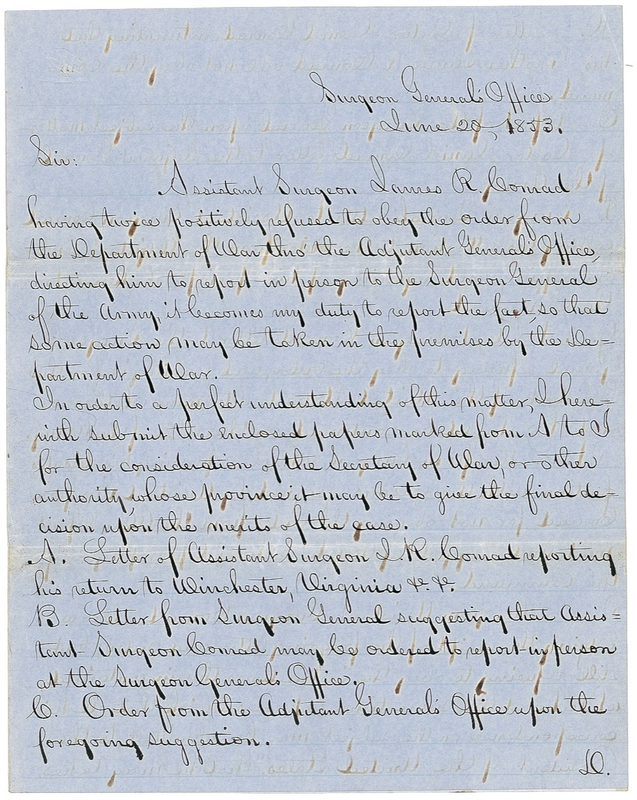 Surgeon General's Office
June 20, 1853.
Sir:
Assistant Surgeon James R. Conrad
having twice positively refused to obey the order from
the Department of War thro' the Adjutant General's Office,
directing him to report in person to the Surgeon General
of the Army, it becomes my duty to report the fact, so that
some action may be taken in the premises by the De=
partment of War.
In order to a perfect understanding of this matter, I here=
with submit the enclosed papers marked from A to I
for the consideration of the Secretary of War, or other
authority, whose province it may be to give the final de=
cision upon the merits of the case.
A. Letter of Assistant Surgeon J. R. Conrad reporting
his return to Winchester, Virginia &c. &c.
B. Letter from Surgeon General suggesting that Assis=
tant Surgeon Conrad may be ordered to report in person
at the Surgeon General's Office.
C. Order from the Adjutant General's Office upon the
foregoing suggestion.
D.